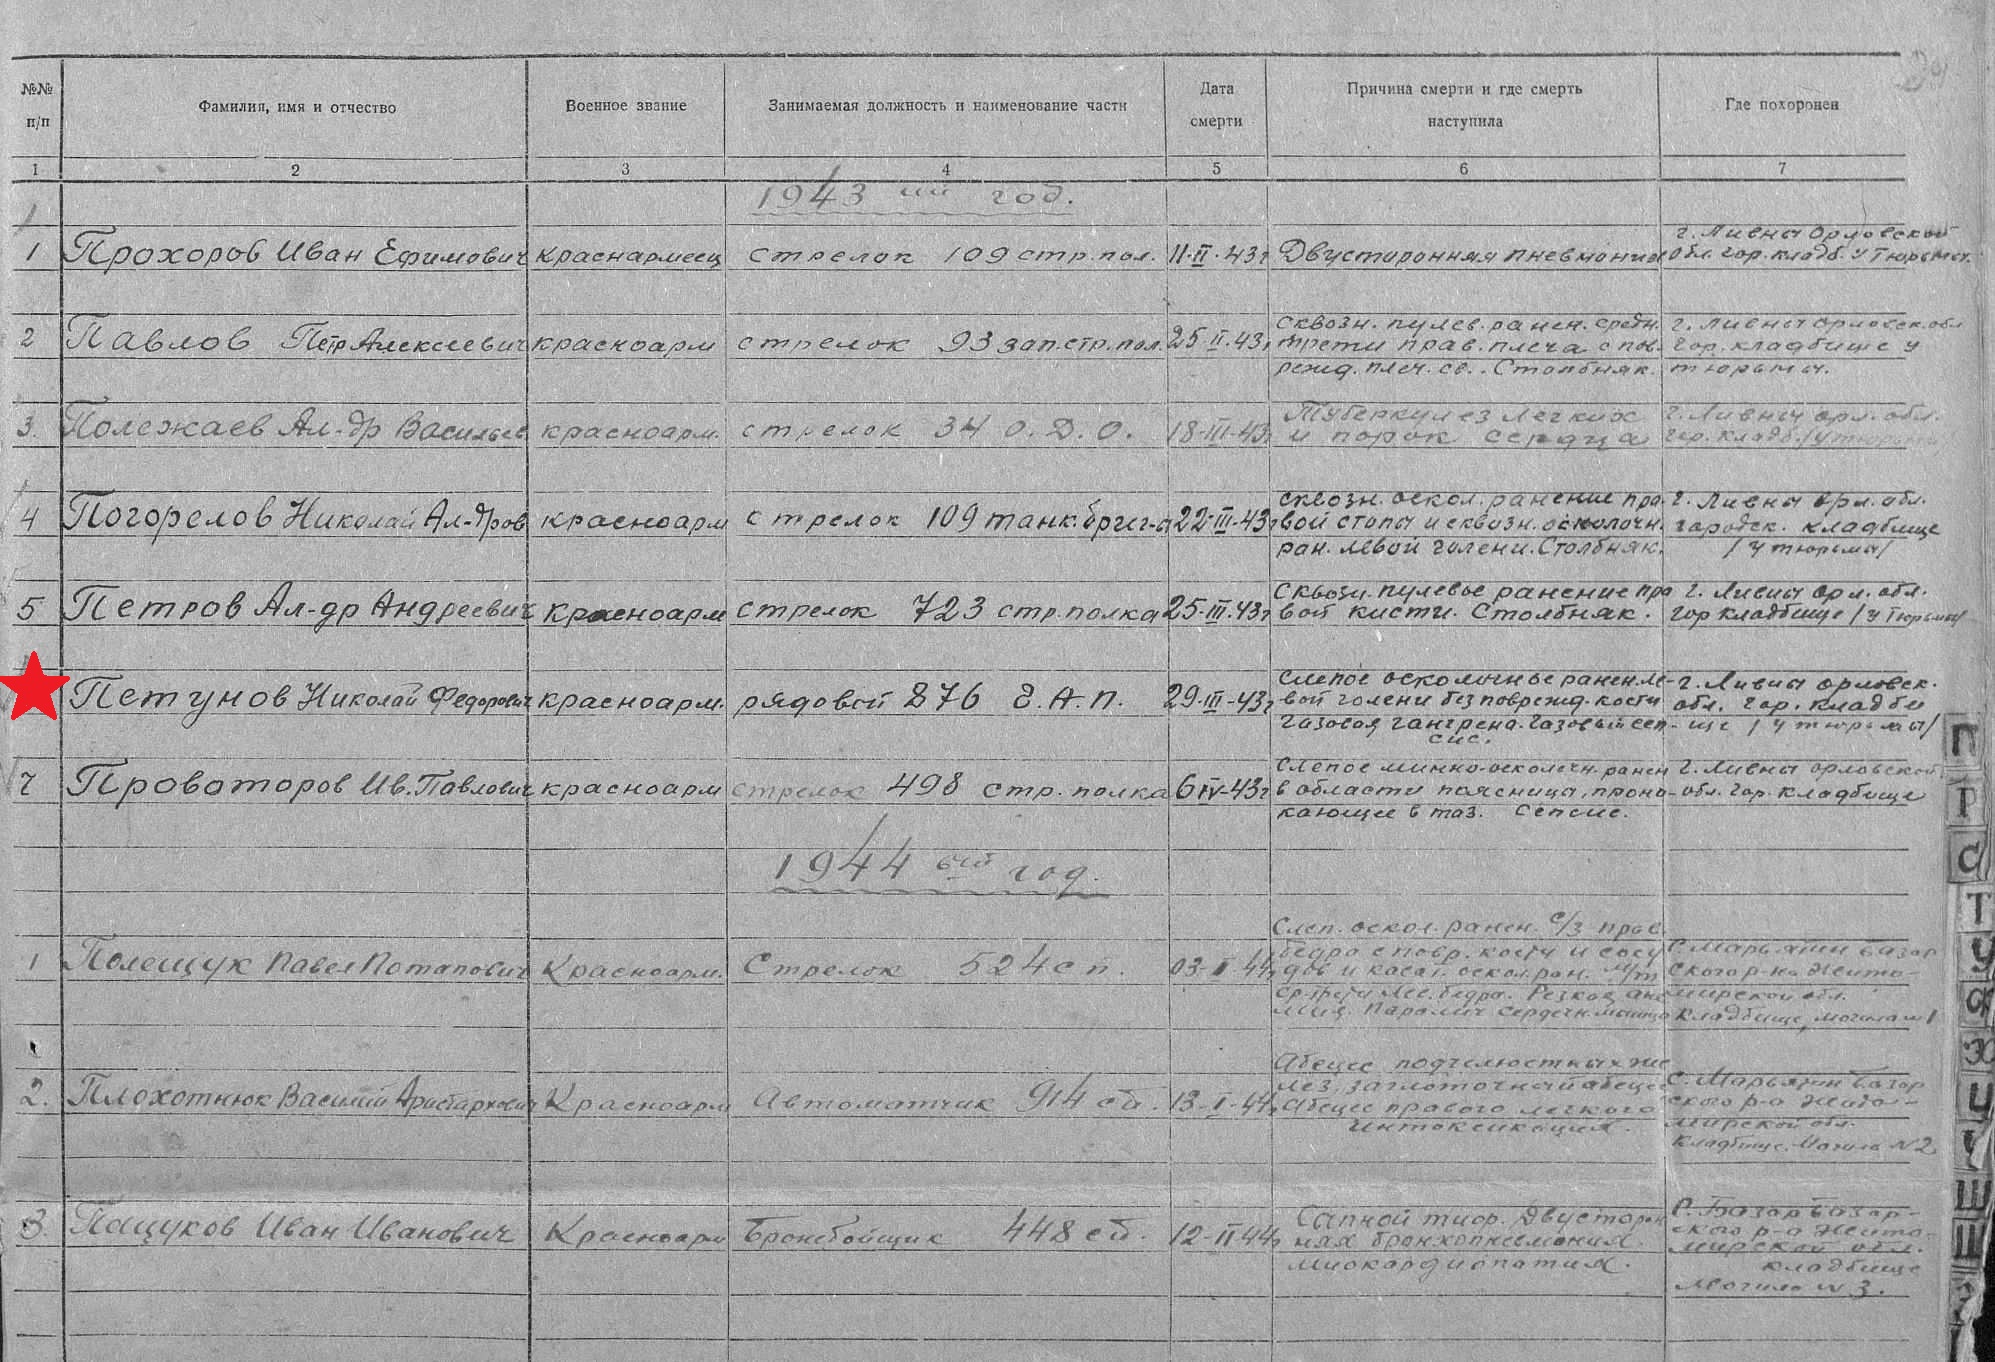 №№ п/п
Фамилия, имя и отчество
Военное звание
Занимаемая должность и наименование части
Дата смерти
Причина смерти и где смерть наступила
Где похоронен
1 2 3 4 5 6 7
1943 ий год.
1 Прохоров Иван Ефимович красноармеец стрелок 109 стр. пол. 11-II-43г Двусторонняя пневмония
г. Ливны Орловской
обл. гор. кладб. у Тюрьмы.
2 Павлов Петр Алексеевич красноарм стрелок 93 зап. стр. пол. 25-II-43г
сквозн. пулев. ранен. средн.
трети прав. плеча с пов-
режд. плеч. св. . Столбняк.
г. Ливны Орловск. обл
гор. кладбище у
тюрьмы.
3. Полежаев Ал-др Васильев. красноарм. стрелок 34 О. Д. О. 18-III-43г
Туберкулез легких
и порок сердца
г. Ливны орл. обл.
гор. кладб. /у тюрьмы/
4 Погорелов Николай Ал-дров красноарм стрелок 109 танк. бриг-а 22-III-43г
сквозн. оскол. ранение пра-
вой стопы и сквозн. осколочн.
ран. левой голени. Столбняк.
г. Ливны орл. обл.
городск. кладбище
/у тюрьмы/
5 Петров Ал-др Андреевич красноарм стрелок 723 стр. полка 25-III-43г
Сквозн. пулевое ранение пра
вой кисти. Столбняк.
г. Ливны орл. обл.
гор кладбище /у Тюрьмы/
Петунов Николай Федорович красноарм. рядовой 876 Г. А. П. 29-III-43г
Слепое осколочное ранен. ле-
вой голени без поврежд. кости
Газовая гангрена. Газовый сеп-
сис.
г. Ливны орловск.
обл. гор. кладби
ще /у тюрьмы/
7 Провоторов Ив. Павлович красноарм стрелок 498 стр. полка 6-IV-43г
Слепое минно-осколочн. ранен
в области поясница, прони-
кающее в таз. Сепсис.
г. Ливны орловской
обл. гор. кладбище
1944 ый год.
1 Полещук Павел Потапович Красноарм. Стрелок 524 сп. 03-I-44г
Слеп. оскол. ранен. с/з прав.
бедра с повр. кости и сосу
дов и касат. оскол. ран. м/т
ср. трети лев. бедра. Резкая ане
мия. Паралич сердечн. мышцы
с Марьятин базар
ского р-на Жито-
мирской обл.
кладбище, могила №1
2. Плохотнюк Василий Аристархович Красноарм Автоматчик 914 сп. 13-I-44г
Абсцес подчелюстных же
лез, заглоточный абсцес
Абсцес правого легкого
Интоксикация.
с. Марьятин Базар
ского р-а Жито-
мирской обл.
кладбище. Могила №2
3. Пацуков Иван Иванович Красноарм Бронебойщик 448 сп. 12-II-44г
Сыпной тиф. Двусторон
няя бронхопневмония.
миокардиопатия.
С. Базар Базар-
ского р-а Жито-
мирской обл.
кладбище
Могила №3.
П
Т
С
Т
У
Ф
Х
Ц
Ч
Ш
Щ